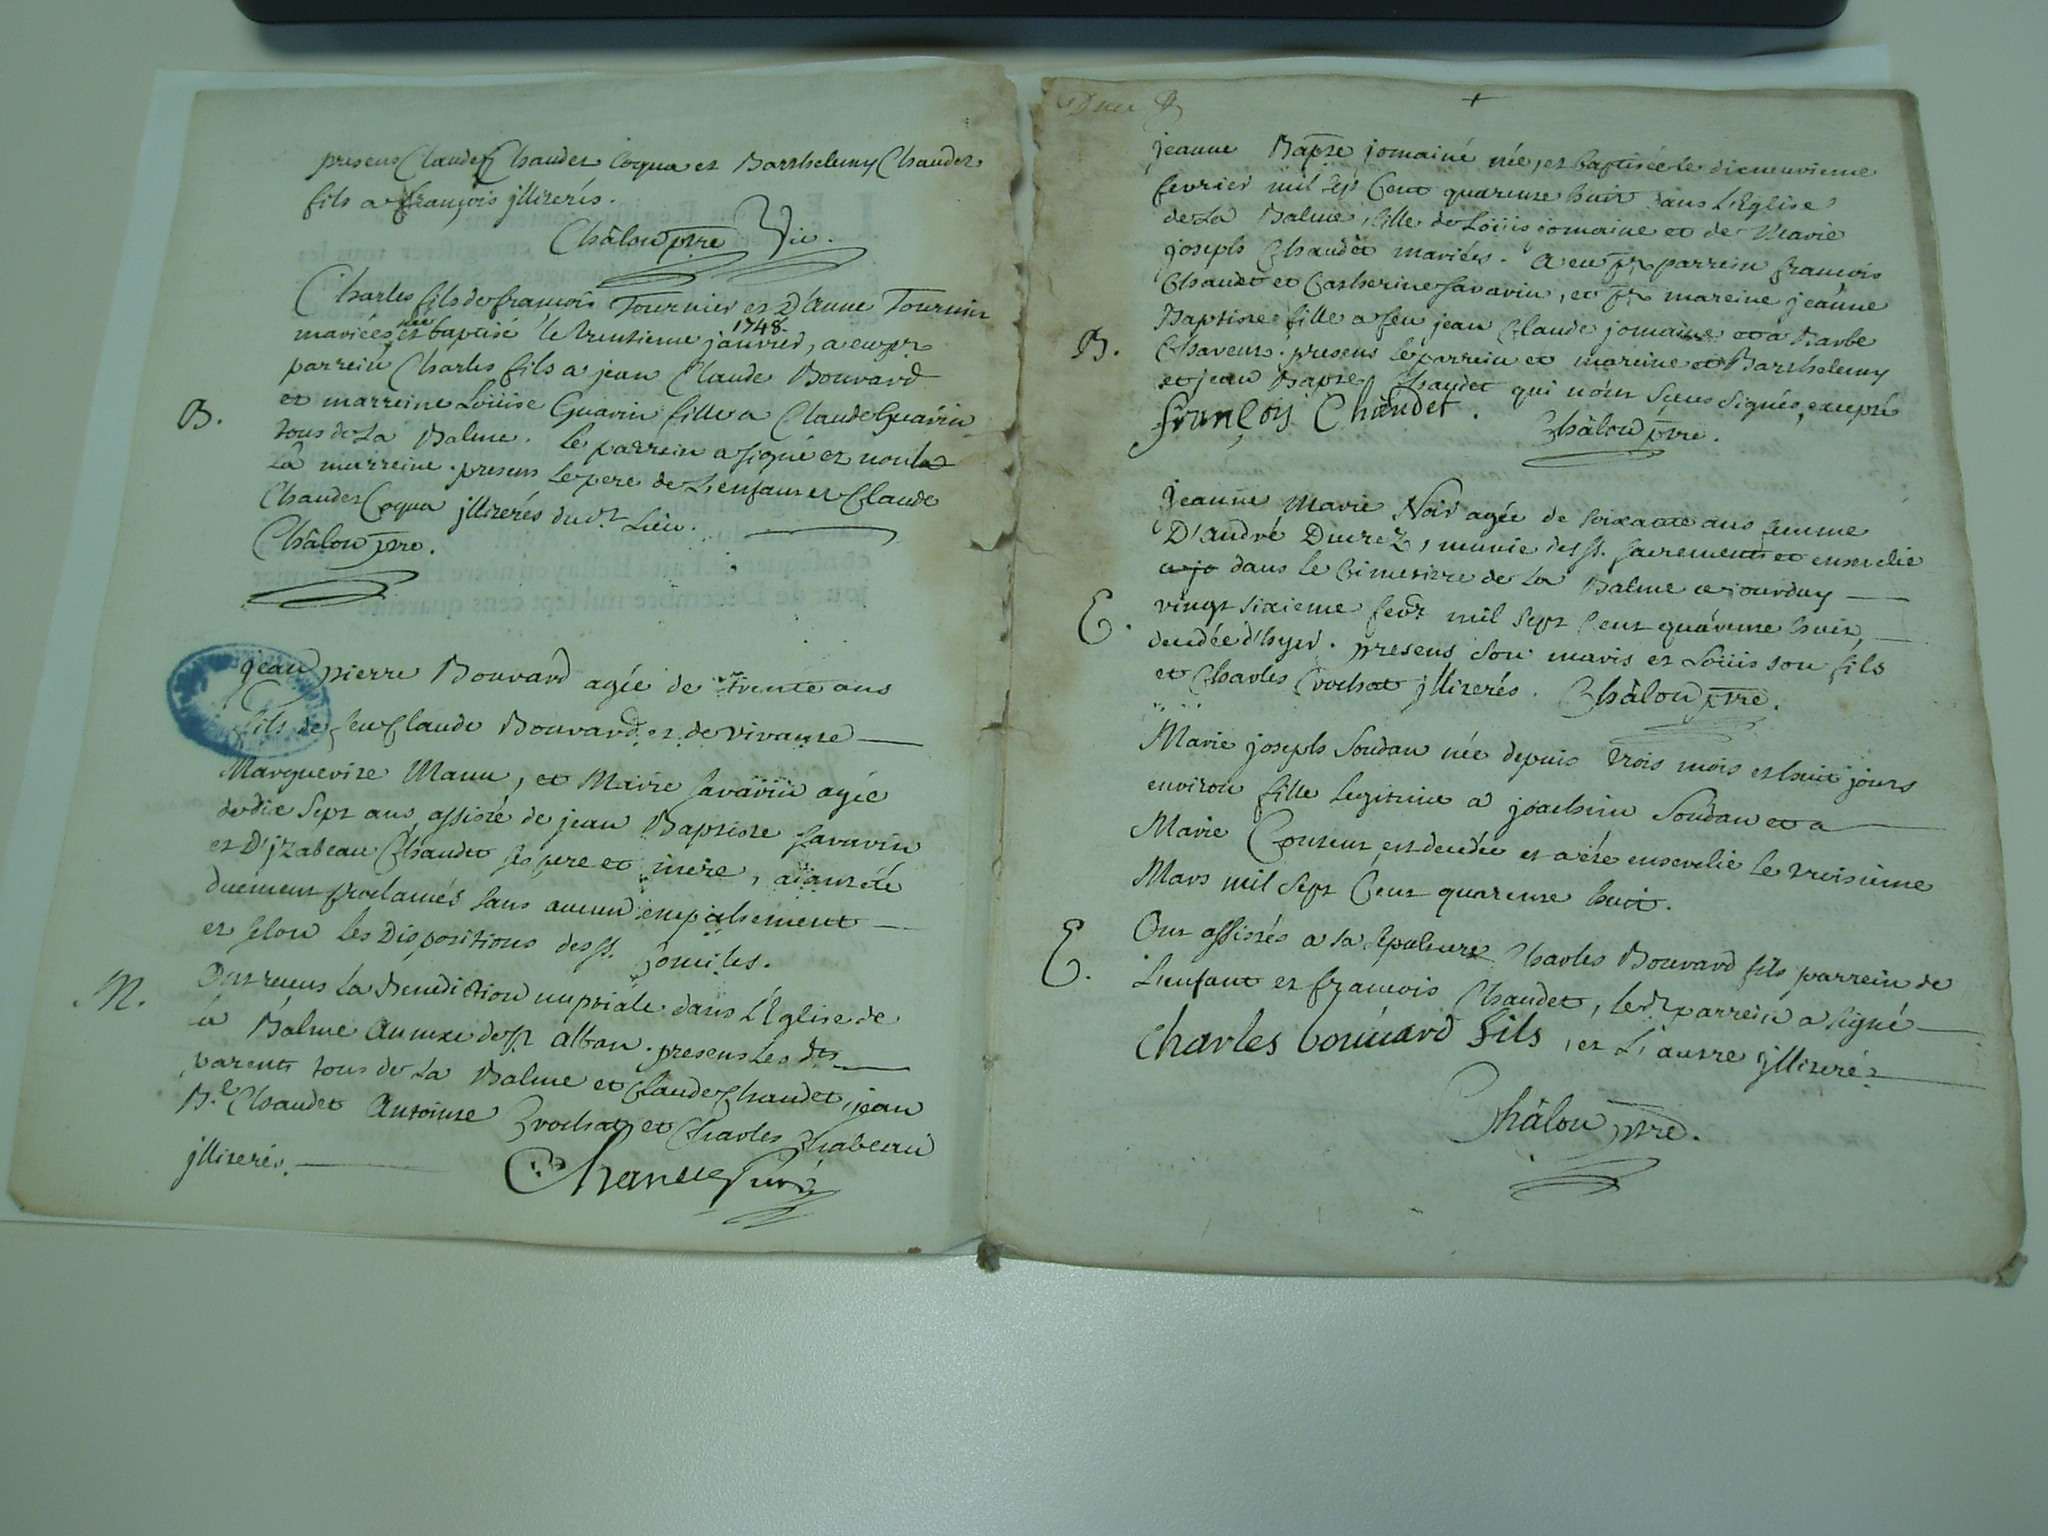 presens Claude Chaudet Coqua et Barthelemy Chaudet
fils a françois jlliterés.
Châlon ptre Vic.
Charles fils de francois Tournier et D'anne Tournier
mariées née et baptisé le trentieme janvier 1748, a eu pr
parrein Charles fils a jean Claude Bouvard
et marreine Loüise Guavin fille a Claude Guavin
tous de La Balme. Le parrein a signé et non la
La marreine. presens Le pere de L'enfant et Claude
Chaudet Coqua jlliterés dudt Lieu.
Châlon ptre.
B.
jean pierre Bouvard agée de trente ans
fils de feu Claude Bouvard et de vivante
Marguerite Manu, et Marie Savarin agée
de dix Sept ans assisté de jean Baptiste Savarin
et D'jzabeau Chaudet ses pere et mere, aiant été
duement proclamés sans aucun empechement
et selon Les Dispositions des SS. Conciles.
M. Ont receus La Benediction nuptiale dans L'Eglise de
la Balme annexe de St alban. presens Les dts
parents tous de La Balme et Claude Chaudet, jean
B.te Chaudet Antoine Crochat et Charles Chabeau
jlliterés.
jeanne Bapte jomainé née, et baptisée le dieneuvieme
fevrier mil sept Cent quarente huit dans L'Eglise
de La Balme, fille de Loüis jomaine et de Marie
joseph Chaudet mariées. A eu pr parrein francois
Chaudet et Catherine Savarin, et pr mareine jeanne
Baptiste fille a feu jean Claude jomaine et a Barbe
B. Chaveut. presens le parrein et mareine et Barthelemy
et jean Bapte Chaudet qui n'ont Sceus Signés, excepté
françois Chaudet. Châlon ptre.
Jeanne Marie Noir agée de soixante ans femme
D'andré Ducrez, munie des SS. sacrements et ensevelie
dans Le Cimetiere de La Balme ce jourduy
E. vingt sixieme fevr mil sept Cent quarente huit,
decedée d'hyer. presens son maris et Loüis son fils
et Charles Crochat jlliterés. Châlon ptre.
Marie joseph Soudan née depuis trois mois et huit jours
environ fille Legitime a joachim Soudan et a
Marie Couteur est decedée et a été ensevelie Le troisieme
Mars mil Sept Cent quarente huit.
E. Ont assistés a sa sepulture Charles Bouvard fils parrein de
L'enfant et francois Chaudet, le dt parrein a signé
Charles bouuard fils, et L'autre jlliteré
Châlon ptre.